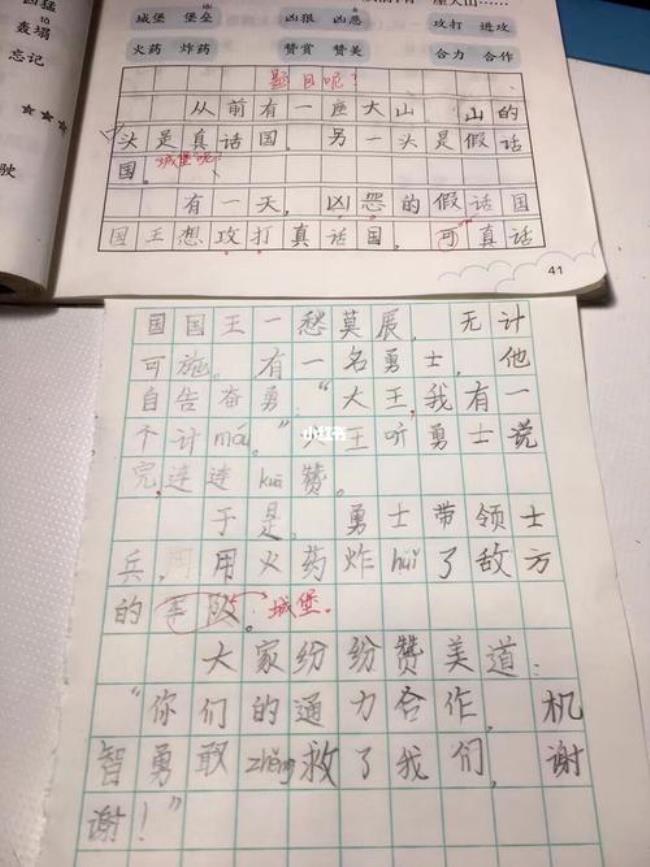 凶猛
轰塌
忘记
★★★
驶
城堡 堡垒
凶狠 凶恶
攻打 进攻
火药 炸药
赞赏 赞美
合力 合作
题目呢?
从前有一座大山 山的
头是真话国。另一头是假话
国。城堡呢?
有一天,凶恶的假话国
国王想攻打真话国,可真话
41
国国王一愁莫展,无计
可施。有一名勇士,他
自告奋勇:“大王,我有一
个计móu。”大王听勇士说
完,连连kuā赞。
小红书
于是,勇士带领士
兵,用用火药炸huǐ了敌方
的军队。城堡。
大家纷纷赞美道:
“你们的通力合作,机
智勇敢zhěng救了我们,谢
谢!”